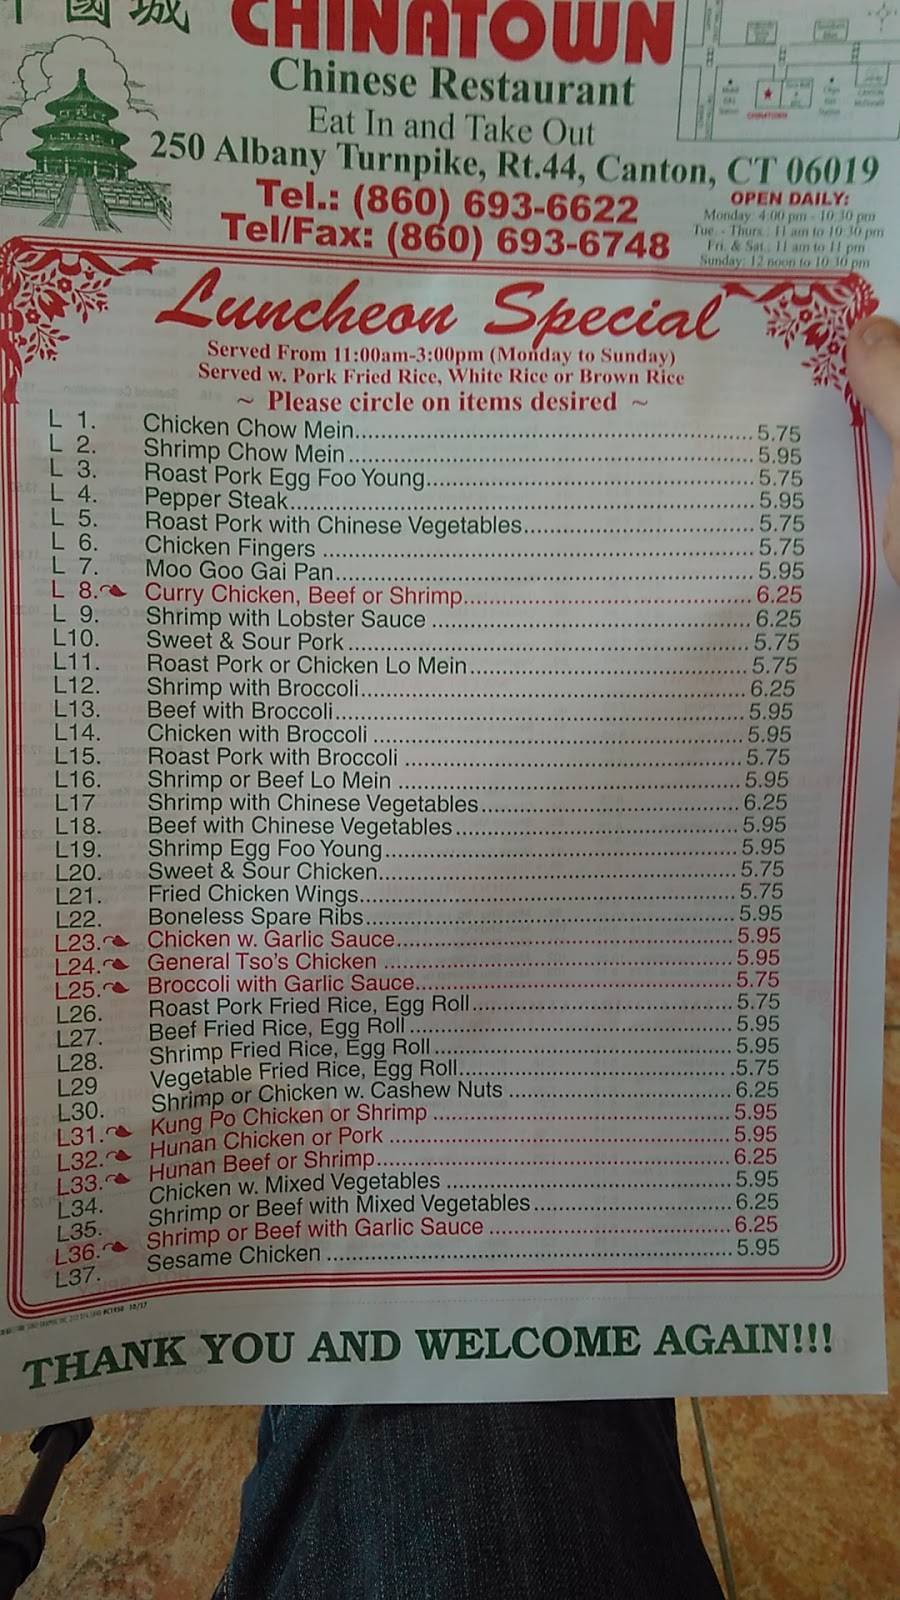 中國城
CHINATOWN
Chinese Restaurant
Eat In and Take Out
250 Albany Turnpike, Rt.44, Canton, CT 06019
Tel.: (860) 693-6622
Tel/Fax: (860) 693-6748
CHINATOWN
OPEN DAILY:
Monday: 4:00 pm - 10:30 pm
Tue. - Thurs.: 11 am to 10:30 pm
Fri. & Sat.: 11 am to 11 pm
Sunday: 12 noon to 10:30 pm
Luncheon Special
Served From 11:00am-3:00pm (Monday to Sunday)
Served w. Pork Fried Rice, White Rice or Brown Rice
~ Please circle on items desired ~
L 1. Chicken Chow Mein 5.75
L 2. Shrimp Chow Mein 5.95
L 3. Roast Pork Egg Foo Young 5.75
L 4. Pepper Steak 5.95
L 5. Roast Pork with Chinese Vegetables 5.75
L 6. Chicken Fingers 5.75
L 7. Moo Goo Gai Pan 5.95
L 8. Curry Chicken, Beef or Shrimp 6.25
L 9. Shrimp with Lobster Sauce 6.25
L10. Sweet & Sour Pork 5.75
L11. Roast Pork or Chicken Lo Mein 5.75
L12. Shrimp with Broccoli 6.25
L13. Beef with Broccoli 5.95
L14. Chicken with Broccoli 5.95
L15. Roast Pork with Broccoli 5.75
L16. Shrimp or Beef Lo Mein 5.95
L17 Shrimp with Chinese Vegetables 6.25
L18. Beef with Chinese Vegetables 5.95
L19. Shrimp Egg Foo Young 5.95
L20. Sweet & Sour Chicken 5.75
L21. Fried Chicken Wings 5.75
L22. Boneless Spare Ribs 5.95
L23. Chicken w. Garlic Sauce 5.95
L24. General Tso's Chicken 5.95
L25. Broccoli with Garlic Sauce 5.75
L26. Roast Pork Fried Rice, Egg Roll 5.75
L27. Beef Fried Rice, Egg Roll 5.95
L28. Shrimp Fried Rice, Egg Roll 5.95
L29 Vegetable Fried Rice, Egg Roll 5.75
L30. Shrimp or Chicken w. Cashew Nuts 6.25
L31. Kung Po Chicken or Shrimp 5.95
L32. Hunan Chicken or Pork 5.95
L33. Hunan Beef or Shrimp 6.25
L34. Chicken w. Mixed Vegetables 5.95
L35. Shrimp or Beef with Mixed Vegetables 6.25
L36. Shrimp or Beef with Garlic Sauce 6.25
L37. Sesame Chicken 5.95
10/17
THANK YOU AND WELCOME AGAIN!!!